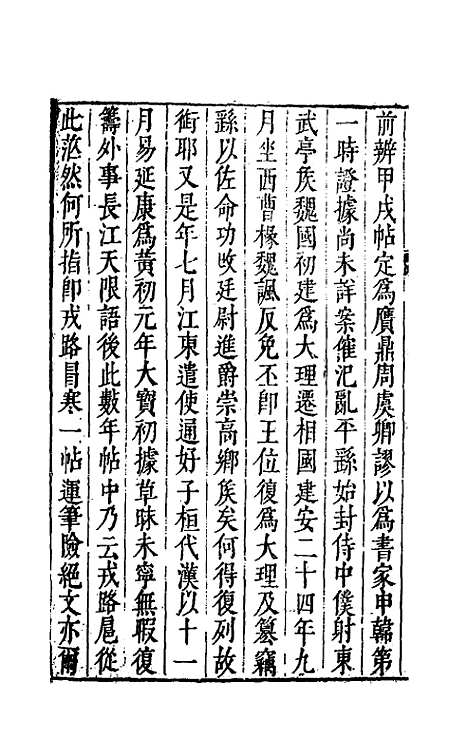 前辨甲戌帖定爲贋鼎周虞卿謬以爲書家申韓第
一時證據尚未詳案傕汜亂平繇始封侍中僕射東
武亭矦魏國初建爲大理遷相國建安二十四年九
月坐西曹椽魏諷反免丕卽王位復爲大理及簒竊
繇以佐命功改廷尉進爵崇高鄉矦矣何得復列故
銜耶又是年七月江東遣使通好子桓代漢以十一
月易延康爲黃初元年大寶初據草昧未寧無暇復
籌外事長江天限語後此數年帖中乃云戎路扈從
此茫然何所指卽戎路冒寒一帖運筆險絕文亦爾